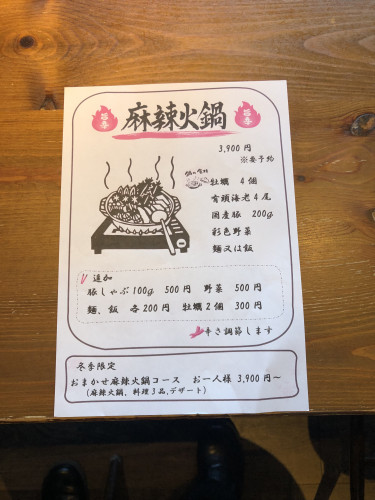 旨辛 麻辣火鍋 旨辛
3,900円
※要予約
鍋の食材
牡蠣 4個
有頭海老4尾
国産豚 200g
彩色野菜
麺又は飯
追加
豚しゃぶ100g 500円 野菜 500円
麺、飯 各200円 牡蠣2個 300円
辛さ調節します
冬季限定
おまかせ麻辣火鍋コース お一人様 3,900円~
(麻辣火鍋, 料理3品,デザート)